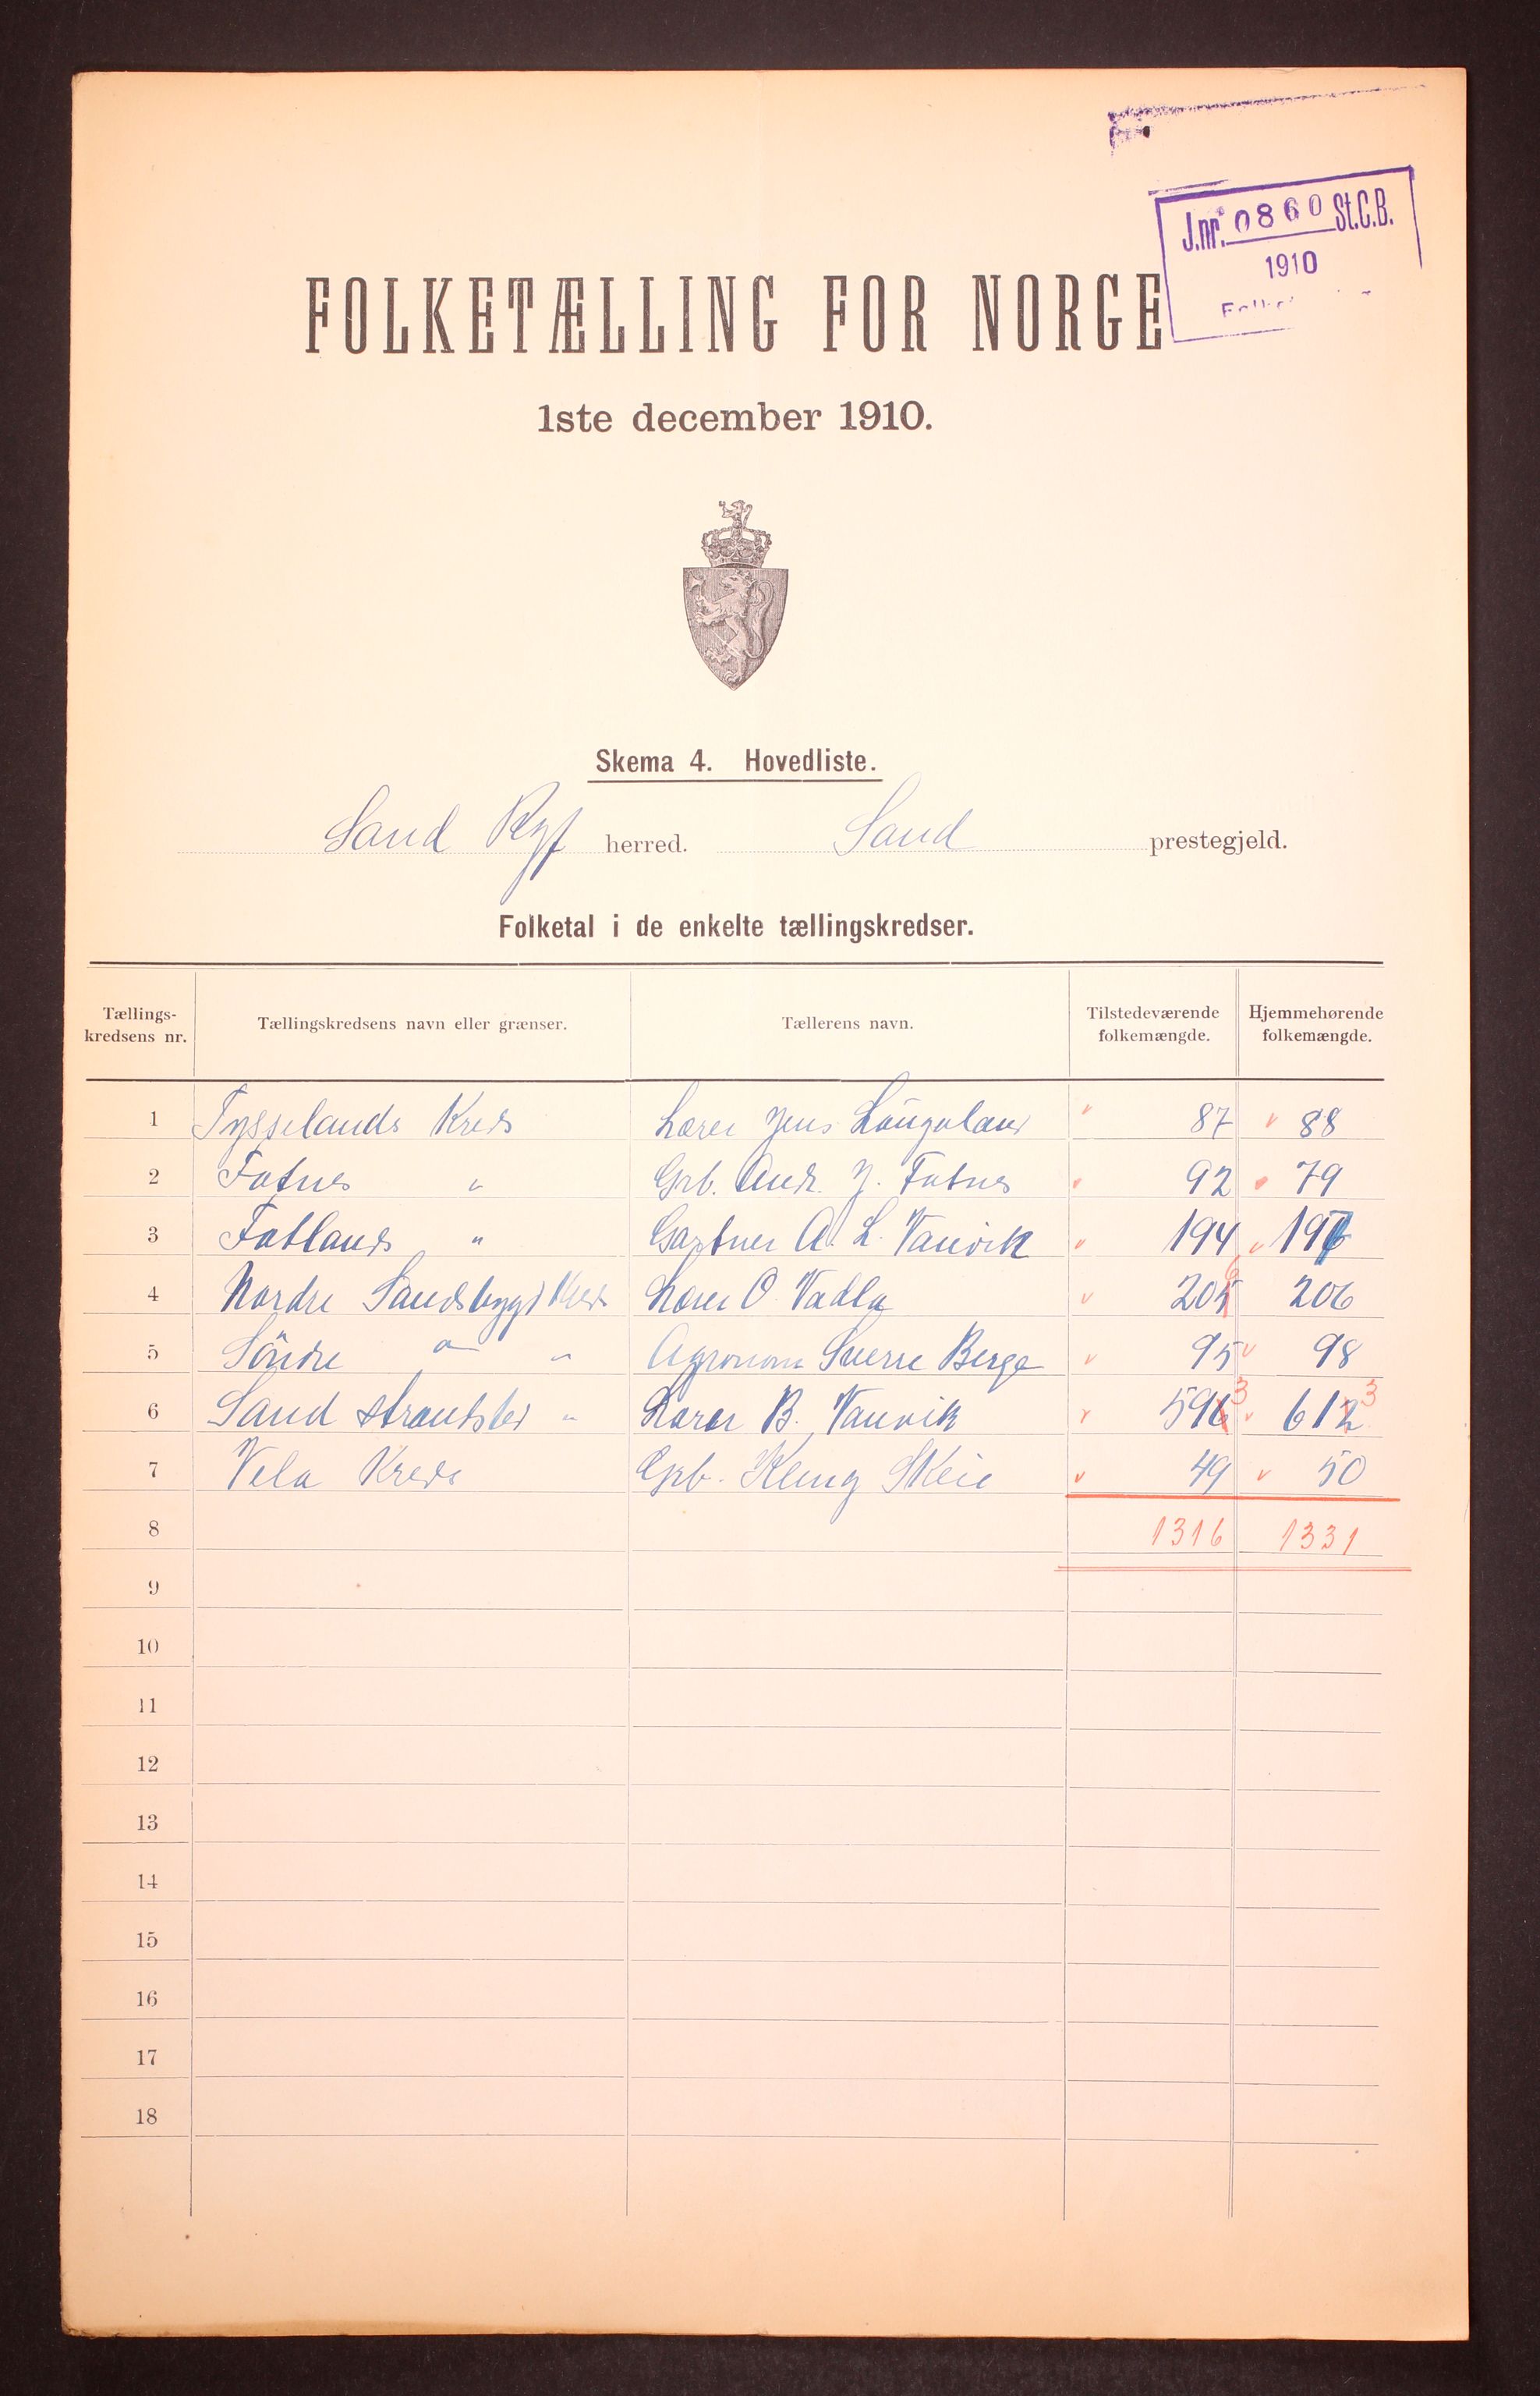 J.nr. 0860 St.C.B.
1910
FOLKETÆLLING FOR NORGE
1ste december 1910.
Skema 4. Hovedliste.
Sand Ryf herred. Sand prestegjeld.
Folketal i de enkelte tællingskredser.
Tællings-kredsens nr. Tællingskredsens navn eller grænser. Tællerens navn. Tilstedeværende folkemængde. Hjemmehørende folkemængde.
1 Tysselands Kreds Lærer Jens 87 88
2 Fatnes " Grb. Andr. J. Fatnes 92 79
3 Fatlands " Gartner A. L. Vanvik 194 197
4 Nordre Sandsbygd Kreds Lærer O. Vadla 206 206
5 Söndre " " Agronom Sverre Berge 95 98
6 Sand strandsted " Lærer B. Vanvik 593 613
7 Vela Kreds Grb. Kleng Skeie 49 50
8 1316 1331
9
10
11
12
13
14
15
16
17
18